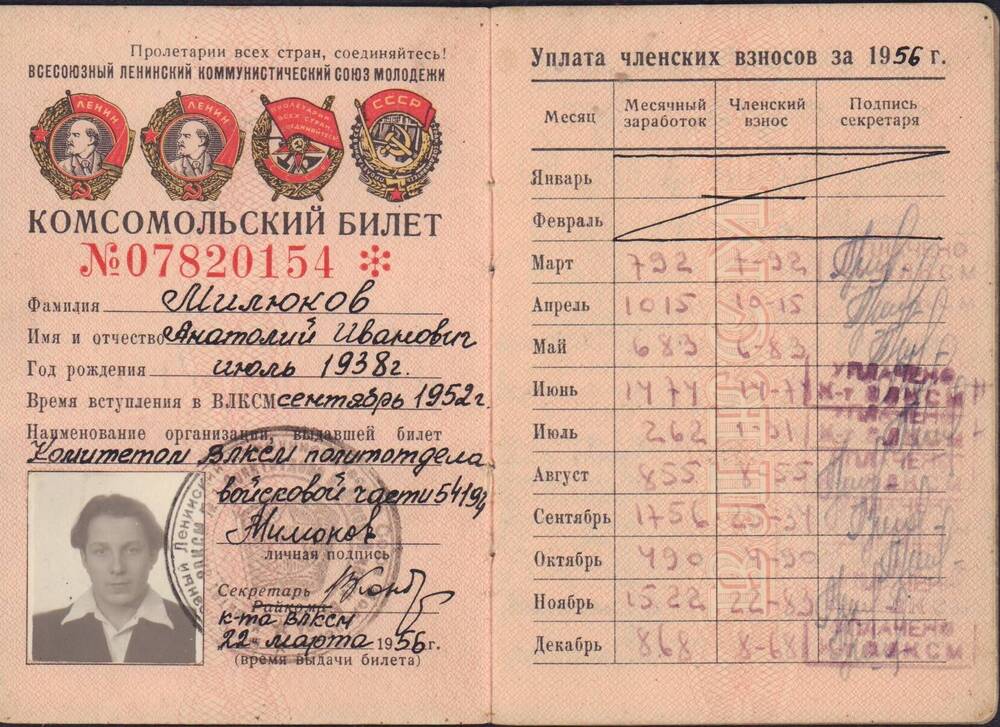 Пролетарии всех стран, соединяйтесь!
ВСЕСОЮЗНЫЙ ЛЕНИНСКИЙ КОММУНИСТИЧЕСКИЙ СОЮЗ МОЛОДЕЖИ
ЛЕНИН
ЛЕНИН
ПРОЛЕТАРИИ ВСЕХ СТРАН, СОЕДИНЯЙТЕСЬ!
СССР
КОМСОМОЛЬСКИЙ БИЛЕТ
№07820154
Фамилия Милюков
Имя и отчество Анатолий Иванович
Год рождения июль 1938г.
Время вступления в ВЛКСМ сентябрь 1952г.
Наименование организации, выдавшей билет
Комитетом ВЛКСМ политотдела
войсковой части 54194
личная подпись
Секретарь
Райкома
к-та ВЛКСМ
22 марта 1956г.
(время выдачи билета)
Уплата членских взносов за 1956 г.
Месяц Месячный заработок Членский взнос Подпись секретаря
Январь
Февраль
Март 792 7-92
Апрель 1015 10-15
Май 683 6-83
Июнь 1474 14-74 УПЛАЧЕНО К-т ВЛКСМ
Июль 262 1-31 УПЛАЧЕНО
Август 855 8-55
Сентябрь 1756
Октябрь 490 4-90
Ноябрь 1522 22-83
Декабрь 868 8-68 УПЛАЧЕНО К-т ВЛКСМ